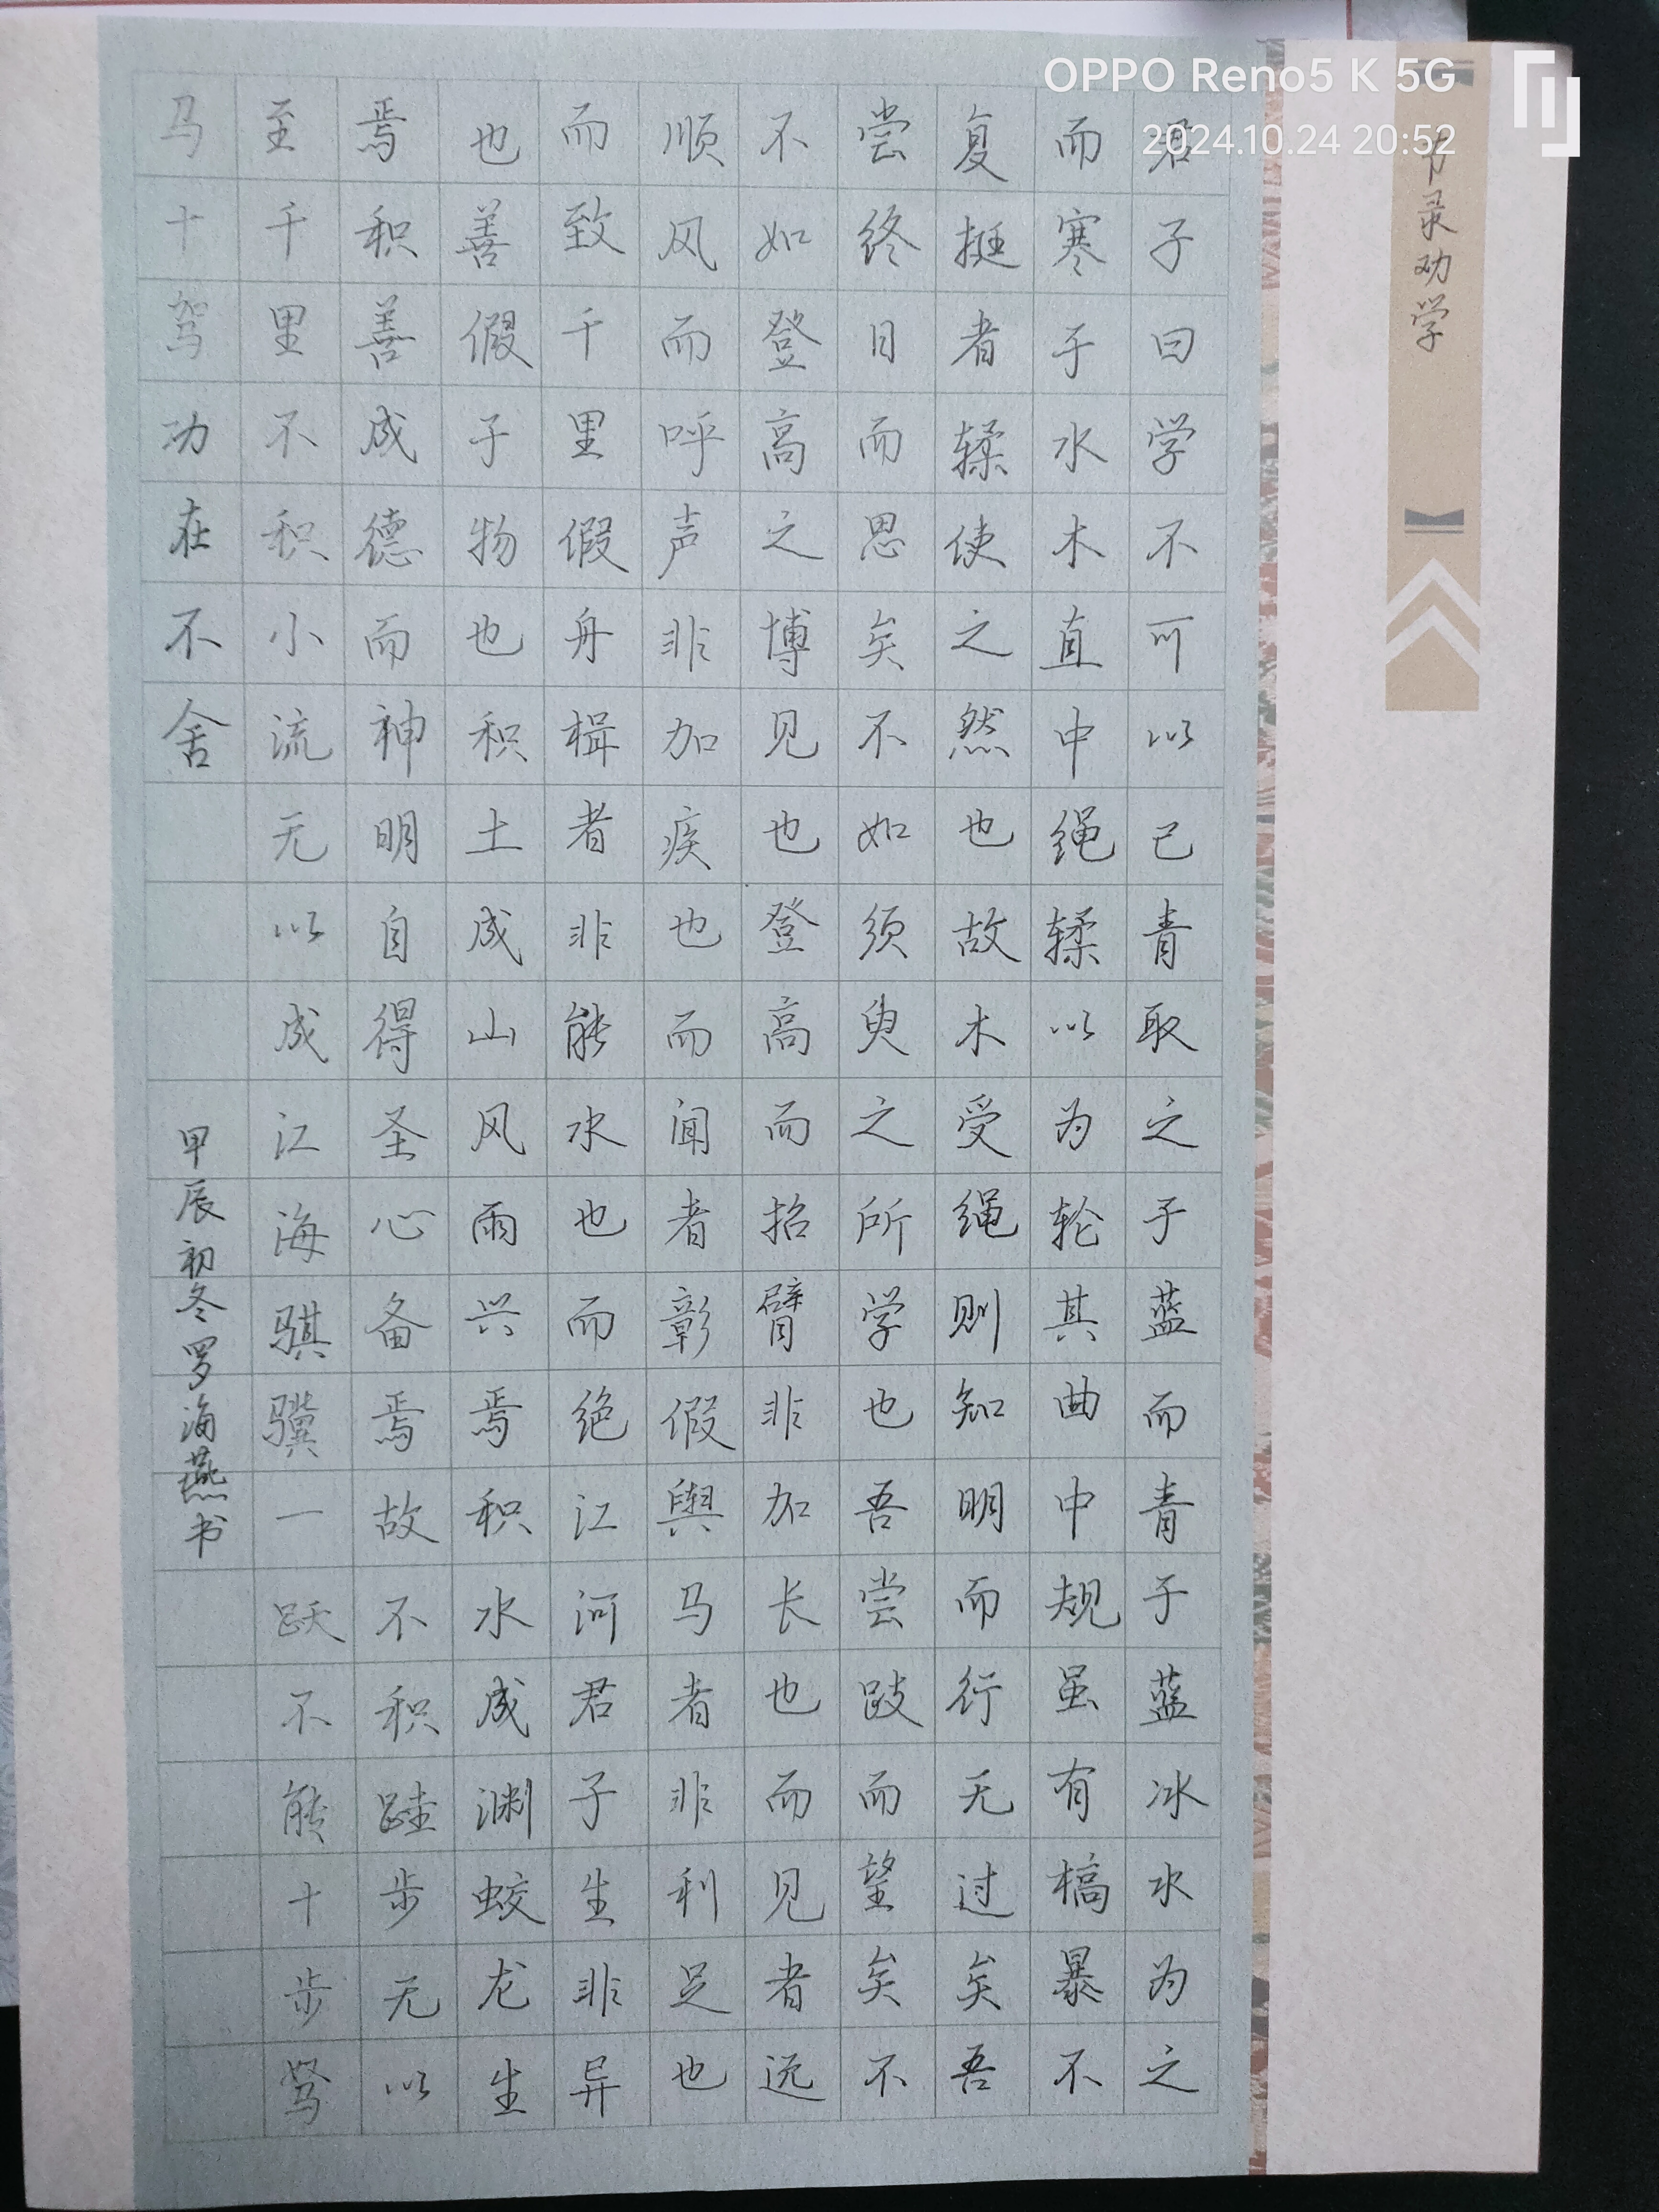 节录劝学
君子曰学不可以已青取之于蓝而青于蓝冰水为之
而寒于水木直中绳輮以为轮其曲中规虽有槁暴不
复挺者輮使之然也故木受绳则知明而行无过矣吾
尝终日而思矣不如须臾之所学也吾尝跂而望矣不
不如登高之博见也登高而招臂非加长也而见者远
顺风而呼声非加疾也而闻者彰假舆马者非利足也
而致千里假舟楫者非能水也而绝江河君子生非异
也善假于物也积土成山风雨兴焉积水成渊蛟龙生
焉积善成德而神明自得圣心备焉故不积跬步无以
至千里不积小流无以成江海骐骥一跃不能十步驽
马十驾功在不舍
甲辰初冬罗海燕书
OPPO Reno5 K 5G
2024.10.24 20:52